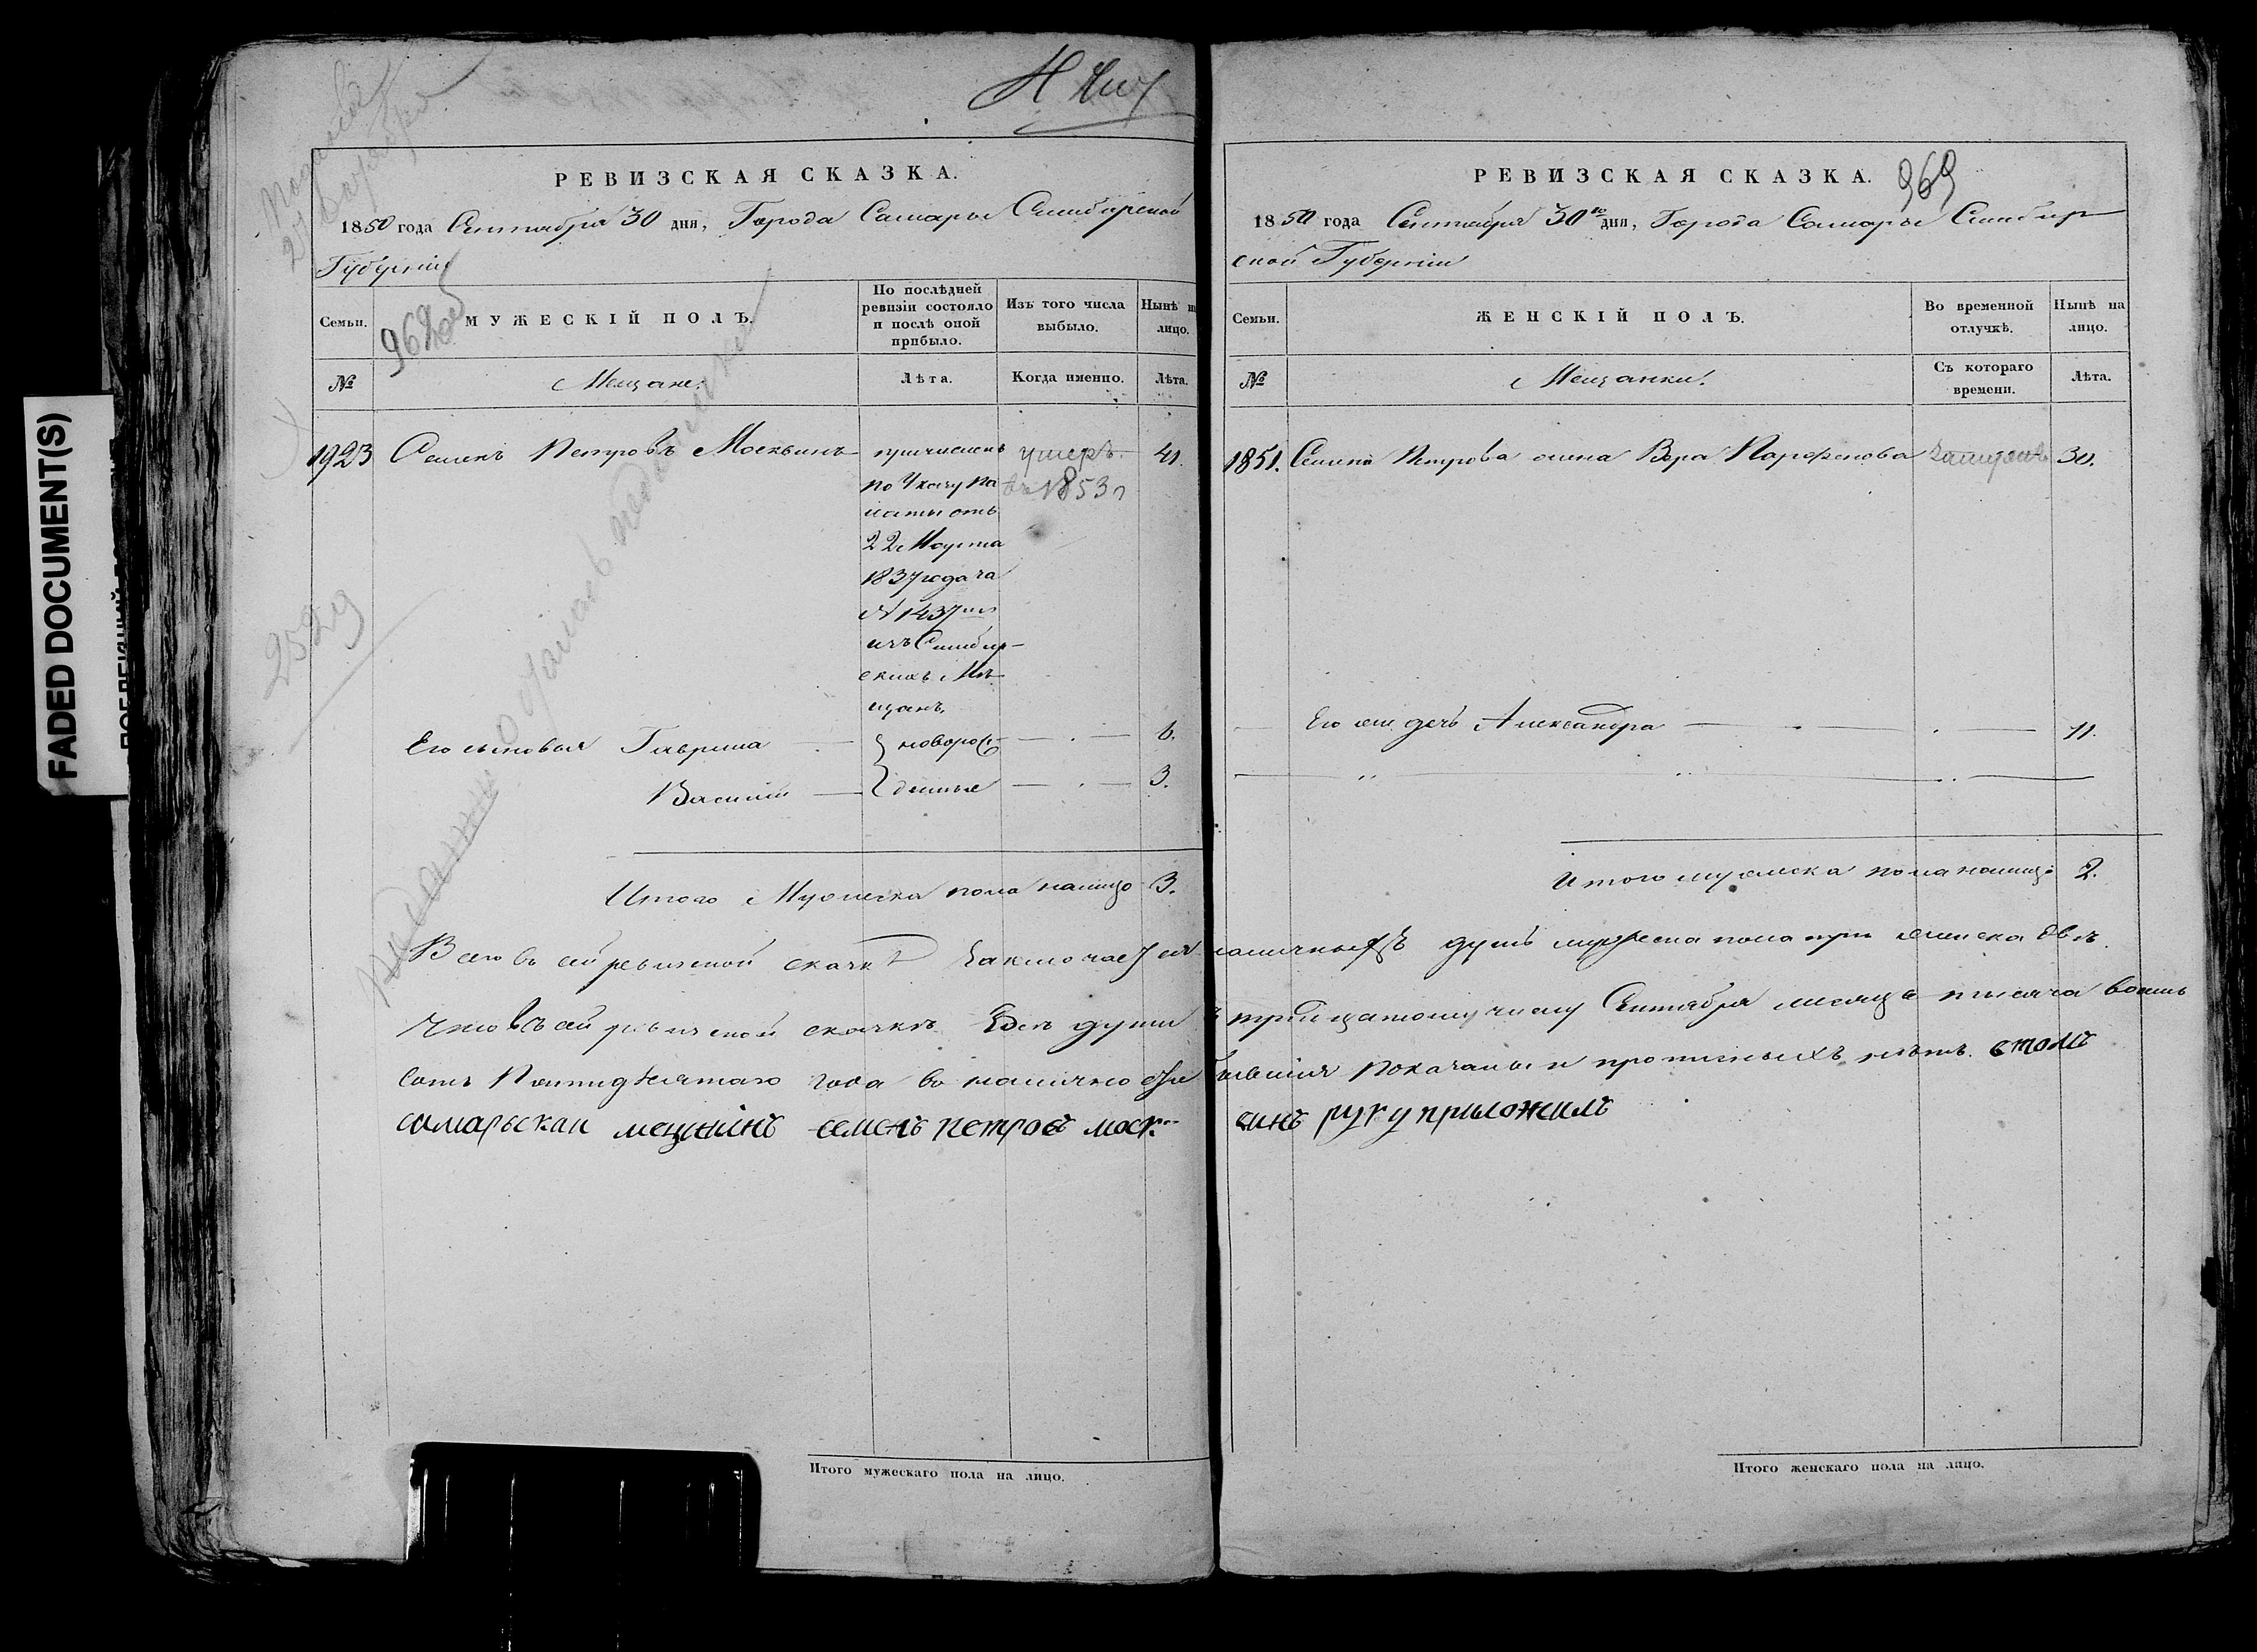 РЕВИЗСКАЯ СКАЗКА.
1850 года Сентября 30 дня, Города Самары Симбирской
Губернии
Семьи.
МУЖЕСКІЙ ПОЛЪ.
По послѣдней ревизіи состояло и послѣ оной прибыло.
Изъ того числа выбыло.
Нынѣ на лицо.
№
Мещане.
Лѣта.
Когда именно.
Лѣта.
1923 Семенъ Петровъ Москвинъ
причисленъ
по Указу Па
латы отъ
22 Марта
1837 года за
№ 1437
изъ Симбир-
скихъ Мѣ
щанъ.
умеръ
въ 1853 г
41.
Его сыновья Гаврила
новорож
6.
Василий
денные
3.
Итого Мужеска пола налицо 3.
РЕВИЗСКАЯ СКАЗКА.
969
1850 года Сентября 30го дня, Города Самары Симбир
ской Губернии
Семьи.
ЖЕНСКІЙ ПОЛЪ.
Во временной отлучкѣ.
Нынѣ на лицо.
№
Мещанки.
Съ котораго времени.
Лѣта.
1851. Семена Петрова жена Вера Парфенова
30.
Его же дочь Александра
11.
Итого женска пола налицо 2.
Всего въ сей ревизской сказкѣ заключается наличныхъ душъ мужеска пола три женска двѣ.
Что въ сей ревизской сказкѣ все души къ тридцатому числу Сентября месяца тысяча восемь
сотъ Пятидесятаго года въ наличности бывшия показаны и прописныхъ нѣтъ. в томъ
самарскаи мещининъ семенъ петровъ москвинъ руку приложилъ
2529
Итого мужескаго пола на лицо.
Итого женскаго пола на лицо.
FADED DOCUMENT(S)